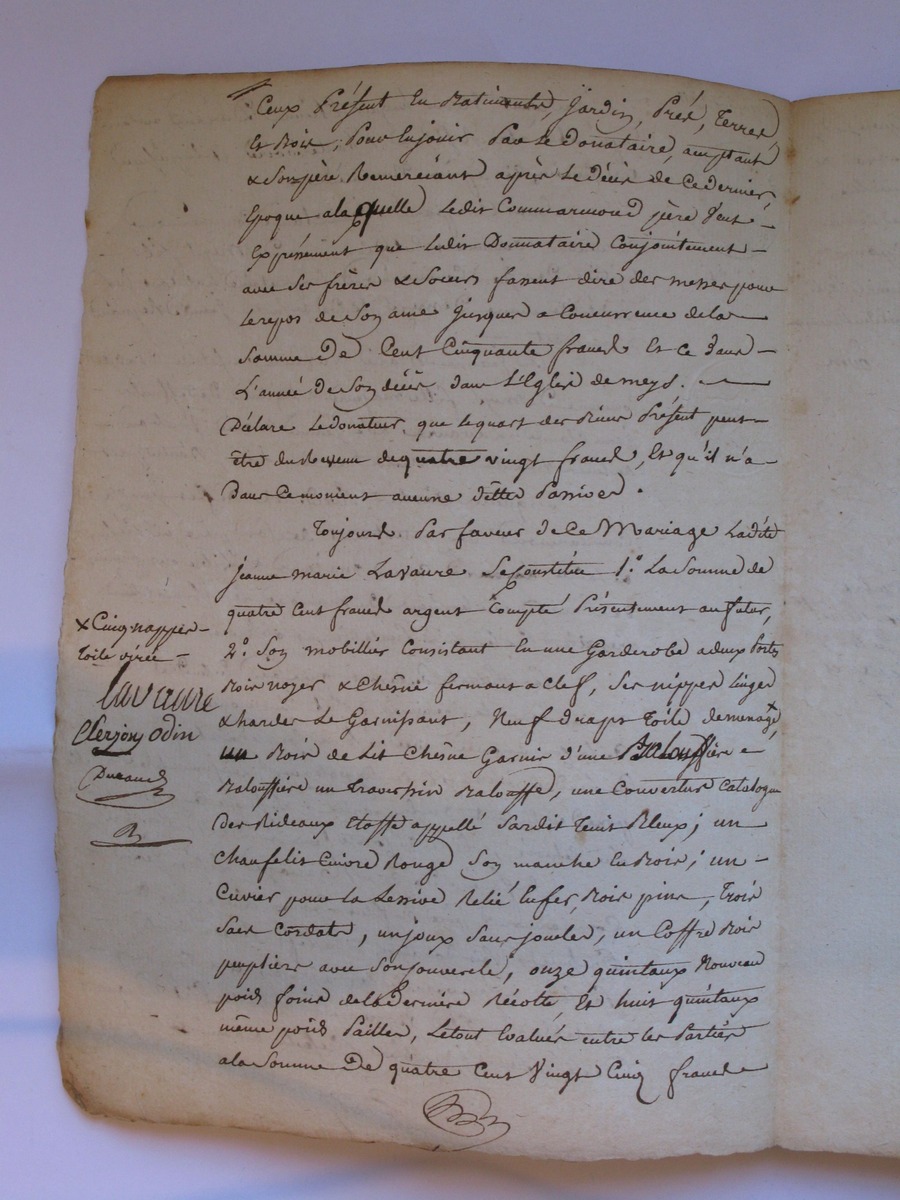 Ceux Présent En Batiments, Jardin, Prés, Terres
Et Bois, Pour En jouir Par Le Donataire, acceptant
& Son père Remerciant après Le décès de Ce dernier,
Epoque a laquelle Ledit Commarmond père Veut
Expréssement que Ledit Donnataire Conjointement
avec Ses frères & Soeurs fassent dire des messes pour
Le repos de Son ame Jusques a Concurrence de la
Somme De Cent Cinquante francs Et Ce Dans
L'année de Son décès dans L'Eglise de meys.
Déclare Le donateur que Le quart des Biens Présent peut
être du Revenu de quatre vingt francs, Et qu'il n'a
Dans Ce moment aucune dette Passive.
Toujours Par faveur de Ce Mariage Ladite
Jeanne marie Lavaure Se Constitue 1.° La Somme de
quatre Cent francs argent Compté Présentement au futur,
2.° Son mobillier Consistant En une Garderobe a deux Portes
Bois noyer & Chêsne fermant a Clef, Ses nippes Linges
& hardes Le Garnissant, Neuf draps Toile de menage x,
un Bois de Lit Chêsne Garnie d'une
Baloussière un Traversin Balouffe, une Couverture Catalogne
Des Rideaux Etoffe appellé Sardis Teint Bleux; un
Chaufelit Cuivre Rouge Son manche En Bois; un
Cuvier pour la Lessive Relié En fer, Bois pins, Trois
Sacs Cordats, un joux Sans joucles, un Coffre Bois
peupliers avec Son Couvercle; onze quintaux Nouveau
poids foins de la Dernière Récolte, Et huit quintaux
même poids Pailles, Le tout Evalués entre les Parties
a la Somme De quatre Cent Vingt Cinq francs
x Cinq nappes
toile virée
Lavaure
Clerjon Odin
Durand